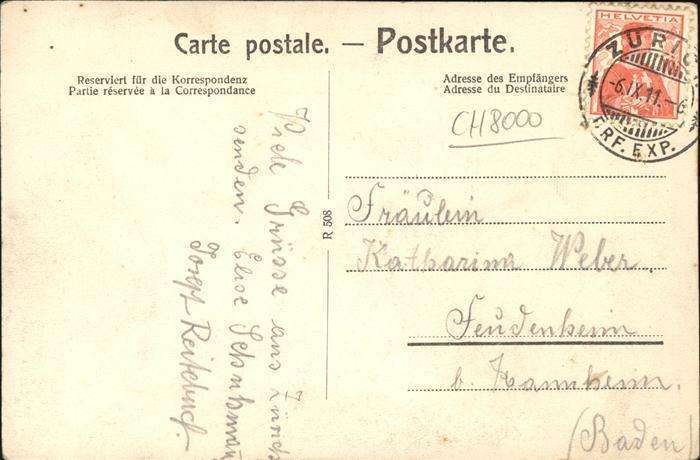 Carte postale. — Postkarte.
Reserviert für die Korrespondenz
Partie réservée à la Correspondance
Adresse des Empfängers
Adresse du Destinataire
HELVETIA
ZÜRIC
-6.IX.11.-6
BRF. EXP.
CH8000
Viele Grüsse aus Zürich
senden. Elise
Josept
R 508
Fräulein
Katharina Weber.
Feudenheim
b. Mannheim.
(Baden)